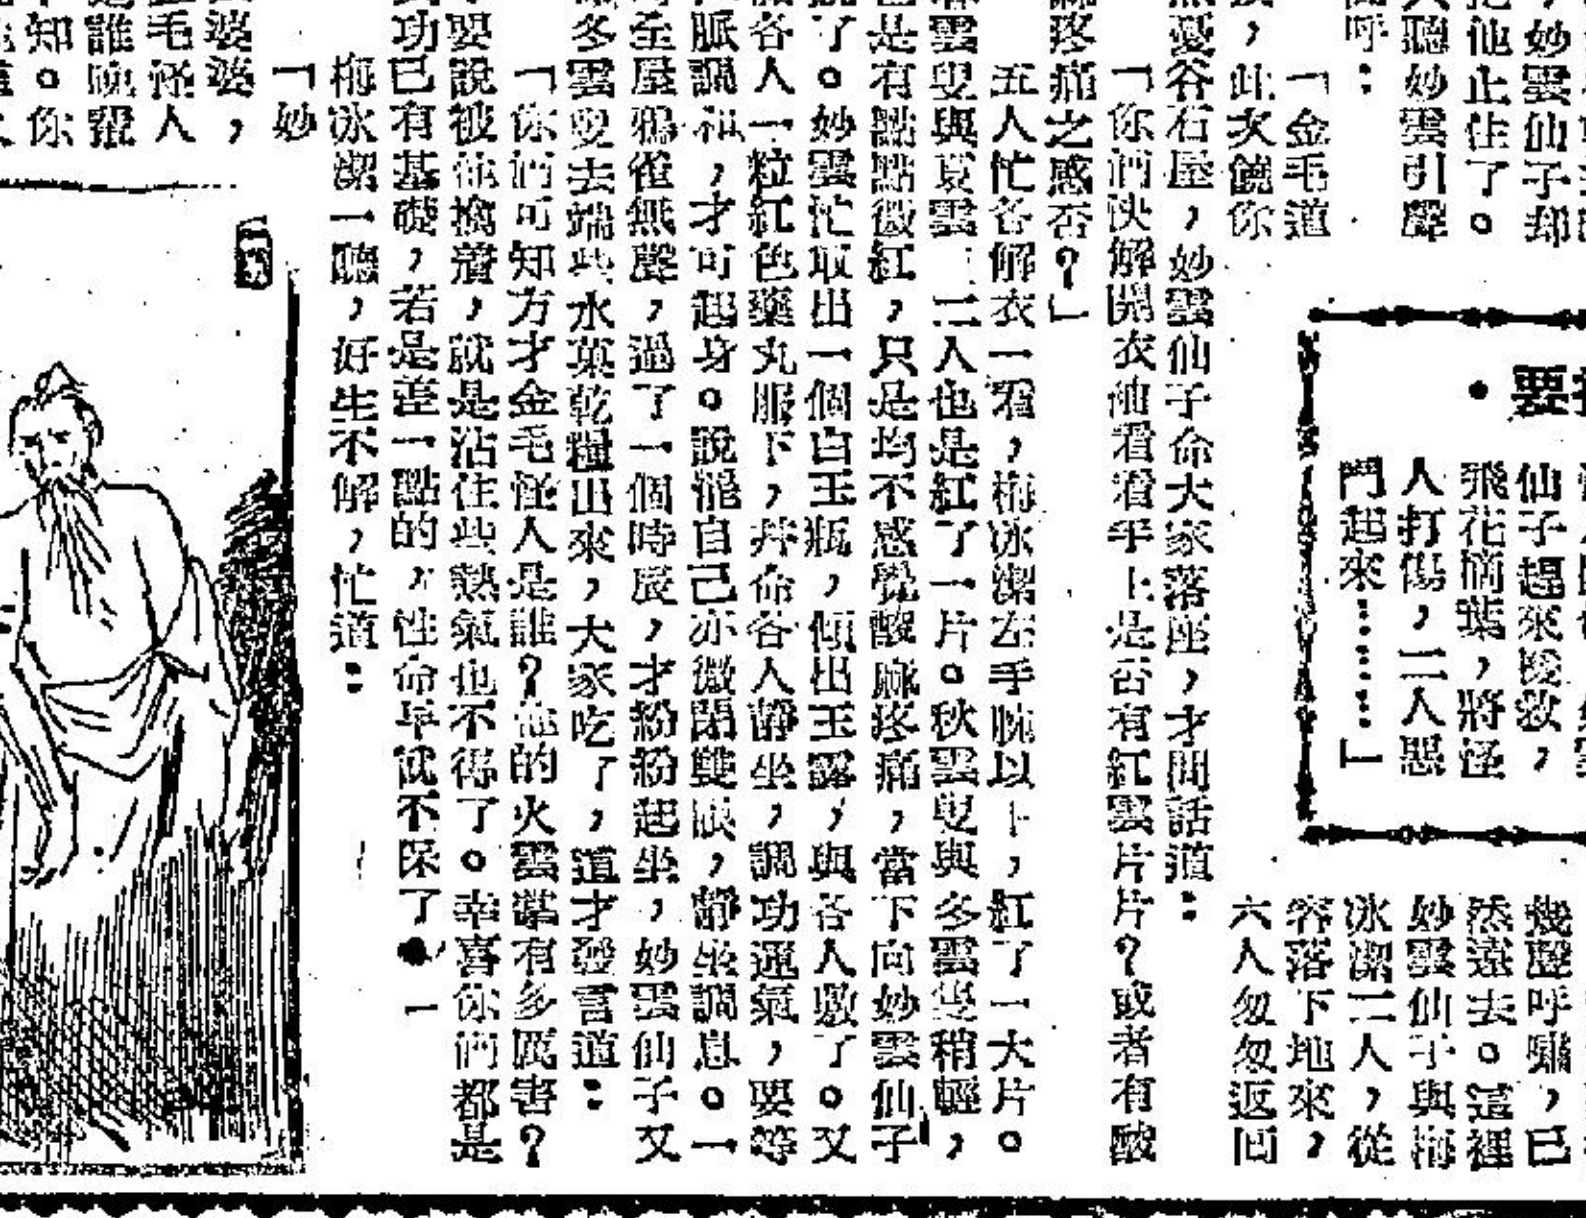 ，妙雲仙子却
把他止住了。
只聽妙雲引聲
呼：
「金毛道
，此次饒你
要
仙子趕來援救，
飛花摘葉，將怪
人打傷，二人惡
鬥起來………」
幾聲呼嘯，已
然遠去。這裡
妙雲仙子與梅
冰潔二人，從
容落下地來，
六人匆匆返回
無憂谷石屋，妙雲仙子命大家落座，才開話道：
「你們快解開衣袖看看手上是否有紅雲片片？或者有酸
麻疼痛之感否？」
五人忙各解衣一看，梅冰潔左手腕以上，紅了一大片。
春雲叟與夏雲叟二人也是紅了一片。秋雲叟與冬雲叟稍輕，
也是有點點微紅，只是均不感覺酸麻疼痛，當下向妙雲仙子
說了。妙雲忙取出一個白玉瓶，傾出玉露，與各人敷了。又
各人一粒紅色藥丸服下，幷命各人靜坐，調功運氣，要等
脈調和，才可起身。說罷自己亦微閉雙眼，靜坐調息。一
時全屋鴉雀無聲，過了一個時辰，才紛紛起坐，妙雲仙子又
冬雲叟去端些水菓乾糧出來，大家吃了，這才發言道：
「你們可知方才金毛怪人是誰？他的火雲掌有多厲害？
不要說被他擒着，就是沾住些熱氣也不得了。幸喜你們都是
功已有基礎，若是差一點的，性命早就不保了。」
梅冰潔一聽，好生不解，忙道：
「妙
婆婆，
毛怪人
誰晚輩
知。你